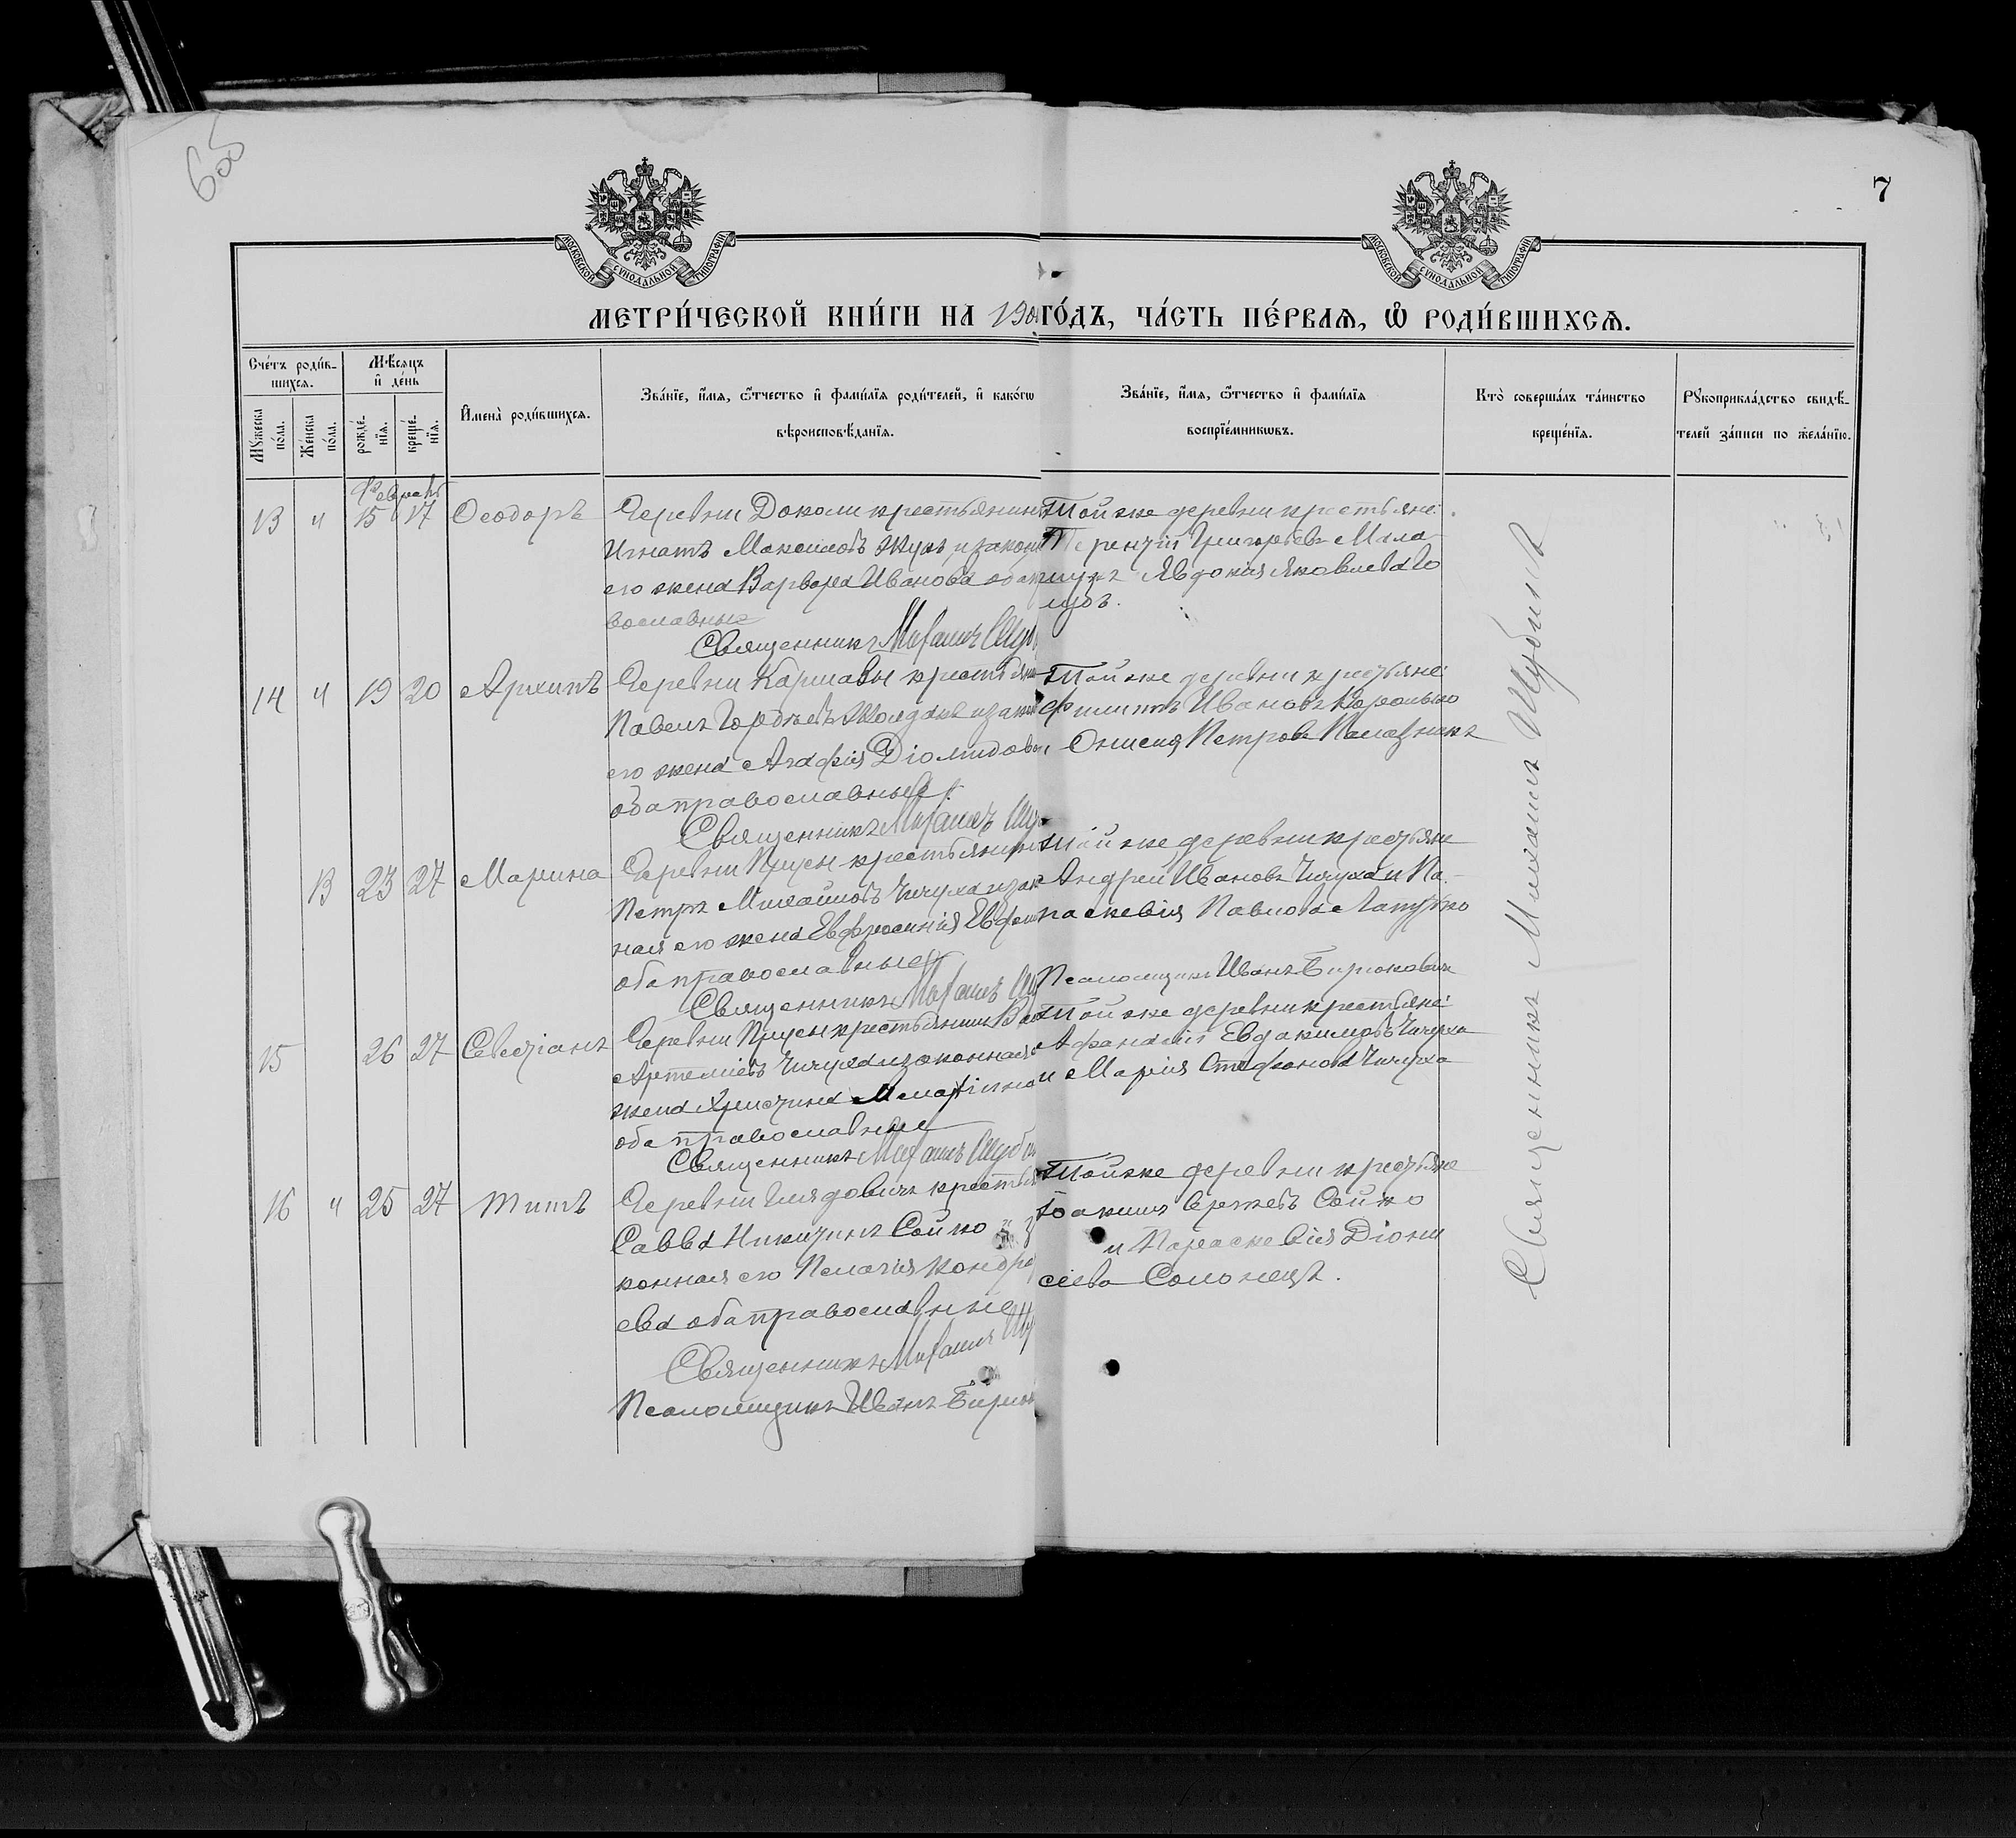 655
7
МОСКОВСКОЙ СѴНОДАЛЬНОЙ ТИПОГРАФІИ
МОСКОВСКОЙ СѴНОДАЛЬНОЙ ТИПОГРАФІИ
МЕТРИ́ЧЕСКОЙ КНИ́ГИ НА 190 ГО́ДЪ, ЧА́СТЬ ПЕ́РВАѦ, Ѽ РОДИ́ВШИХСѦ.
Сче́тъ роди́в-
шихсѧ.
Мꙋ́жеска по́ла.
Же́нска по́ла.
Мѣ́сѧцъ
и҆ де́нь
рожде́-
нїѧ.
креще́-
нїѧ.
И҆мена̀ роди́вшихсѧ.
Зва́нїе, и҆́мѧ, ѻ҆́тчество и҆ фамилїѧ роди́телей, и҆ како́гѡ
вѣроисповѣ́данїѧ.
Зва́нїе, и҆́мѧ, ѻ҆́тчество и҆ фамилїѧ
воспрїе́мникѡвъ.
Кто̀ соверша́лъ та́инство
креще́нїѧ.
Рꙋкоприкла́дство свидѣ́-
телей за́писи по жела́нїю.
Февраль
13 " 15 17 Ѳеодоръ
Деревни Доколи крестьянинъ
Игнатъ Максимовъ Жукъ и закон
его жена Варвара Иванова оба пр
вославные
Священникъ Михаилъ Шуб
Той же деревни крестьяне:
Терентій Григорьевъ Мала
шукъ Явдокія Яковлева
14 " 19 20 Архипъ
Деревни крестьян
Павелъ Гордѣевъ и закон
его жена Агафія Діомидова
оба православные
Священникъ Михаилъ Шу
Той же деревни крестьяне:
Филиппъ Ивановъ Королько
Онисія Петрова
13 23 27 Марина
Деревни Прусы крестьянинъ
Петръ Михайловъ Чичуха и закон
ная его жена Евфросинія
оба православные
Священникъ Михаилъ Шу
Той же деревни крестьяне
Андрей Ивановъ Чичуха и Па-
раскевія Павлова Латушко
Псаломщикъ Иванъ Бирюковичъ
15 26 27 Севастіанъ
Деревни Прусы крестьянинъ
Артеміевъ Чичуха и законная
жена Христина
оба православные
Священникъ Михаилъ Шуби
Той же деревни крестьяне:
Афанасій Евдакимовъ Чичуха
и Марія Стефанова Чичуха
16 " 25 27 Титъ
Деревни крестья
Савва Никитинъ Сойко и за
конная его Пелагія Кондра
ева оба православные
Священникъ Михаилъ Шу
Псаломщикъ Иванъ Бирюк
Той же деревни крестьяне
Іоакимъ Сергеевъ Сойко
и Параскевія Діони
сіева Солонецъ.
Священникъ Михаилъ Шубинъ